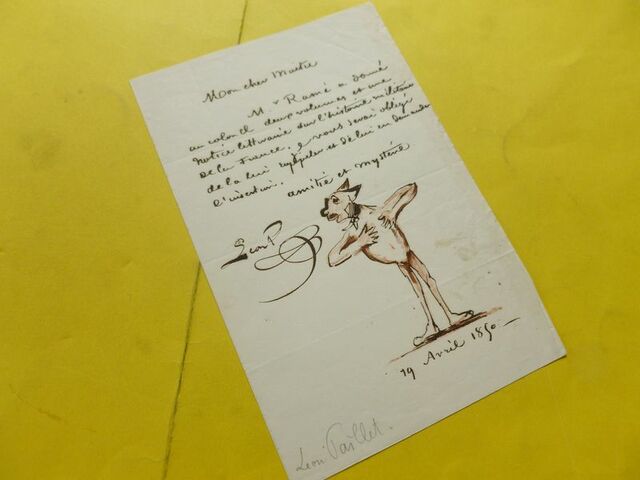 Mon cher Maître
Mr Ramé a donné
au colonel deux volumes et une
notice littéraire sur l'histoire militaire
de la France, je vous serai obligé
de la lui rappeler et de lui en demander
l'insertion.
amitié et mystère
Léon P
19 Avril 1850
Léon Paillet.